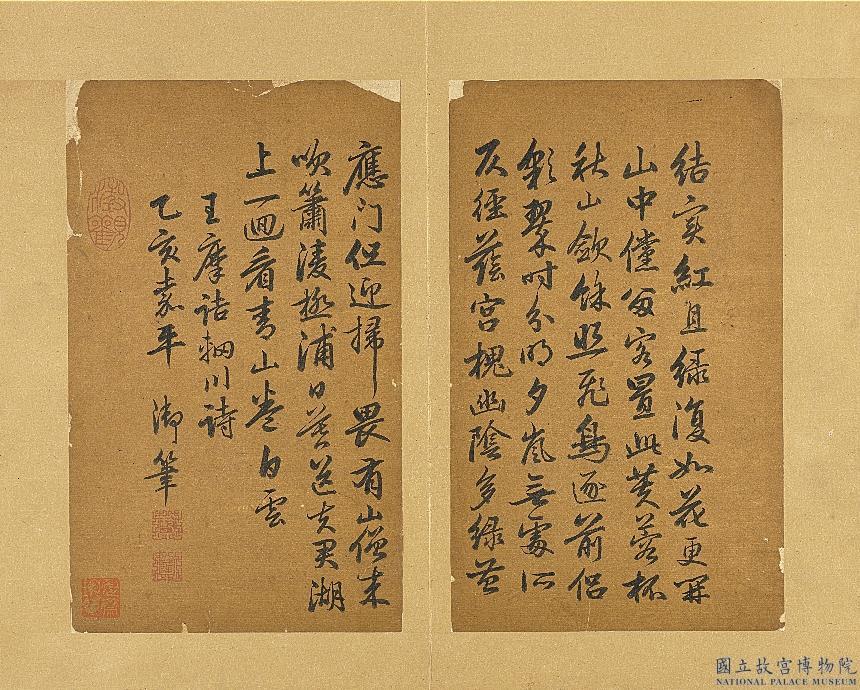 結實紅且綠復如花更開
山中儻留客置此芙蓉杯
秋山斂餘照飛鳥逐前侶
彩翠時分明夕嵐無處所
仄徑蔭宮槐幽陰多綠苔
應門但迎掃畏有山僧來
吹簫凌極浦日暮送夫君湖
上一迴看青山卷白雲
王摩詰輞川詩
乙亥嘉平 御筆
澂觀
國立故宮博物院
NATIONAL PALACE MUSEUM